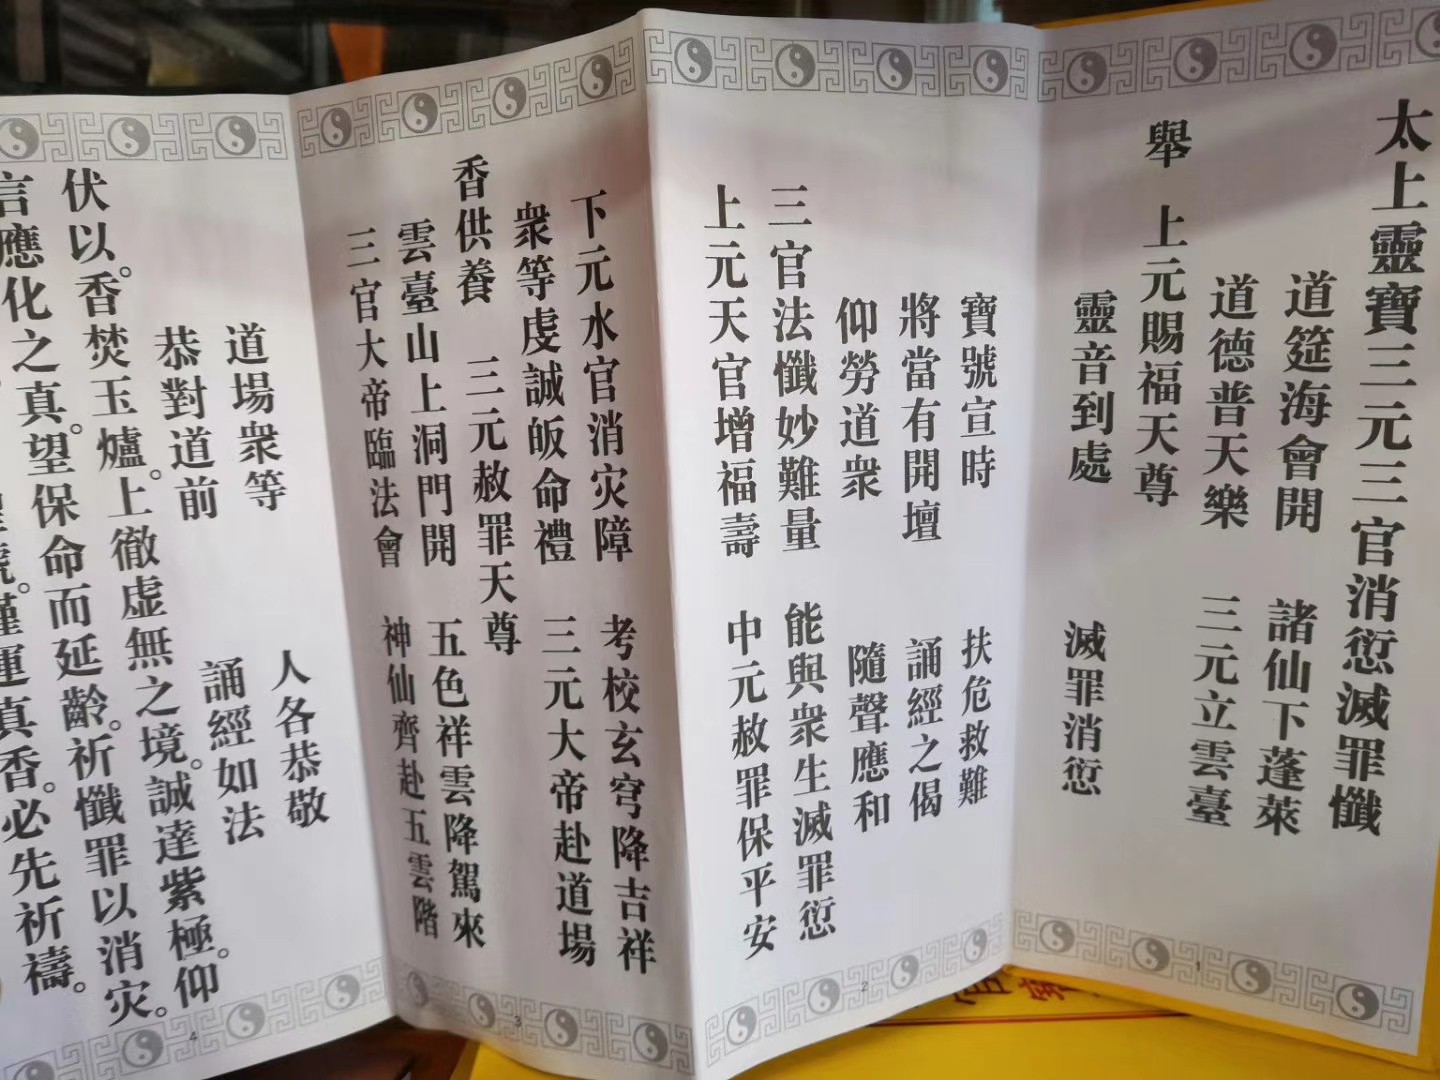 太上靈寶三元三官消愆滅罪懺
道筵海會開 諸仙下蓬萊
道德普天樂 三元立雲臺
舉 上元賜福天尊
靈音到處 滅罪消愆
1
寶號宣時 扶危救難
將當有開壇 誦經之偈
仰勞道衆 隨聲應和
三官法懺妙難量 能與衆生滅罪愆
上元天官增福壽 中元赦罪保平安
2
下元水官消灾障 考校玄穹降吉祥
衆等虔誠皈命禮 三元大帝赴道場
香供養 三元赦罪天尊
雲臺山上洞門開 五色祥雲降駕來
三官大帝臨法會 神仙齊赴五雲階
3
道場衆等 人各恭敬
恭對道前 誦經如法
伏以。香焚玉爐。上徹虛無之境。誠達紫極。仰
言應化之真。望保命而延齡。祈懺罪以消灾。
號。謹運真香。必先祈禱。
4